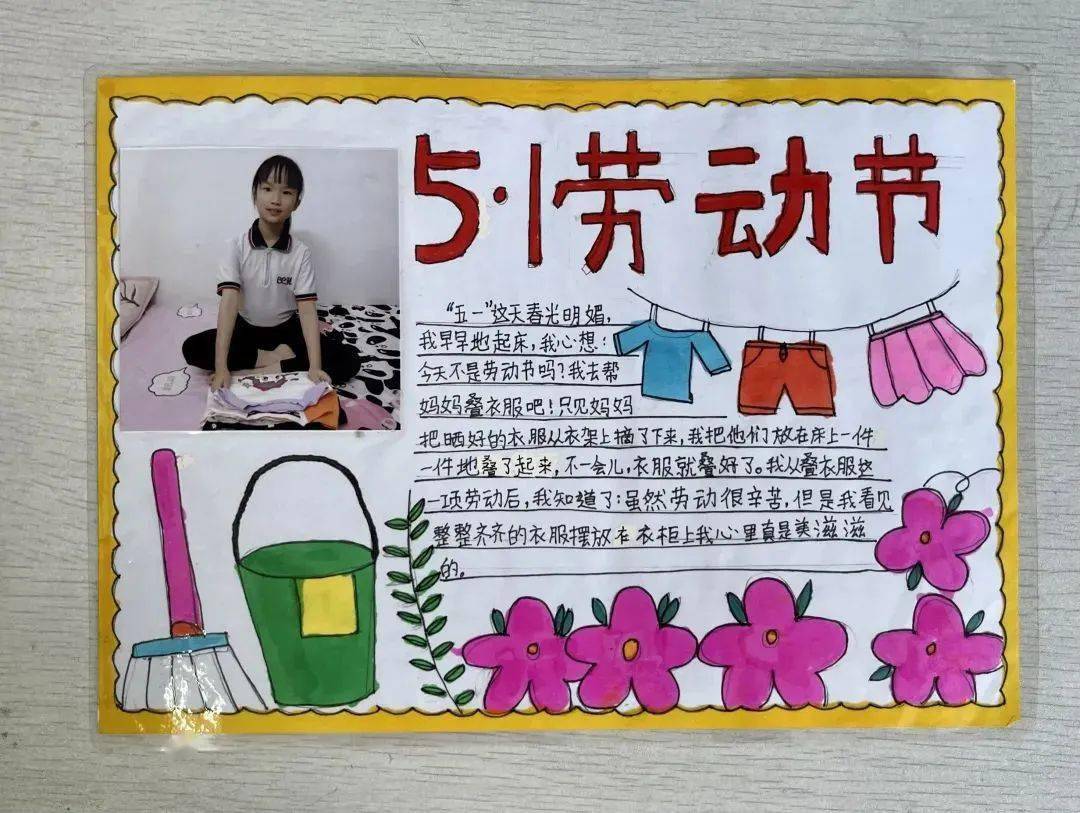 5·1劳动节
“五一”这天春光明媚,
我早早地起床,我心想:
今天不是劳动节吗?我去帮
妈妈叠衣服吧!只见妈妈
把晒好的衣服从衣架上摘了下来,我把他们放在床上一件
一件地叠了起来,不一会儿,衣服就叠好了。我从叠衣服这
一项劳动后,我知道了:虽然劳动很辛苦,但是我看见
整整齐齐的衣服摆放在衣柜上我心里真是美滋滋
的。